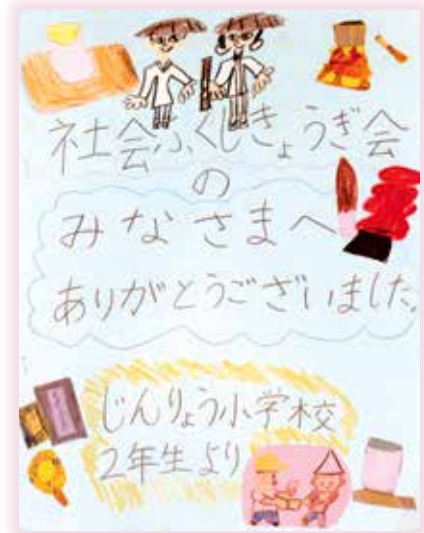 社会ふくしきょうぎ会
の
みなさまへ
ありがとうございました。
じんりょう小学校
2年生より